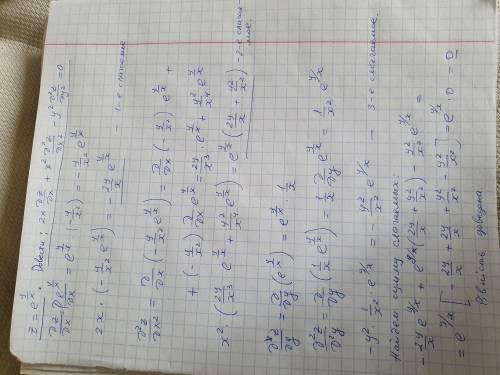 z = e^{y/x}. Довести: 2x ∂z/∂x + x² ∂²z/∂x² − y² ∂²z/∂y² = 0
∂z/∂x = ∂/∂x (e^{y/x}) = e^{y/x} · (−y/x²) = −y/x² e^{y/x}
2x · (−y/x² e^{y/x}) = −2y/x e^{y/x} — 1-е слагаемое
∂²z/∂x² = ∂/∂x (−y/x² e^{y/x}) = ∂/∂x (−y/x²) e^{y/x} +
+ (−y/x²) ∂/∂x e^{y/x} = 2y/x³ · e^{y/x} + y²/x⁴ e^{y/x}
x² · (2y/x³ e^{y/x} + y²/x⁴ e^{y/x}) = e^{y/x} (2y/x + y²/x²) – 2-е слагаемое.
∂z/∂y = ∂/∂y (e^{y/x}) = e^{y/x} · 1/x
∂²z/∂²y = ∂/∂y (1/x e^{y/x}) = 1/x ∂/∂y e^{y/x} = 1/x² e^{y/x}
−y² · 1/x² e^{y/x} = −y²/x² e^{y/x} — 3-е слагаемое.
Найдем сумму слагаемых:
−2y/x e^{y/x} + e^{y/x} (2y/x + y²/x²) − y²/x² e^{y/x} =
= e^{y/x} [−2y/x + 2y/x + y²/x² − y²/x²] = e^{y/x} · 0 = 0
Рівність доведена